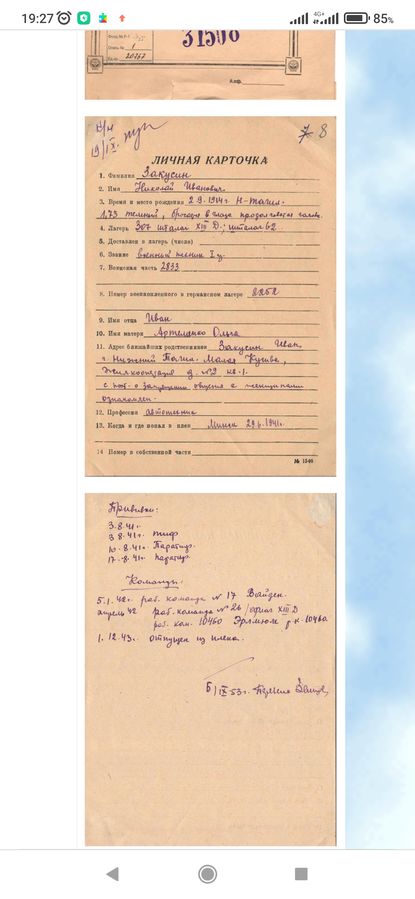 19:27
4G+
85%
Фонд № Р-1
Опись № 1
20767
31500
Анф.
19/IX.
7 8
ЛИЧНАЯ КАРТОЧКА
1. Фамилия Закусин
2. Имя Николай Иванович
3. Время и место рождения 2 9.1914г. Н-Тагил.
1.73 темный,
4. Лагерь 307 шталаг XIII D; шталаг 62
5. Доставлен в лагерь (число)
6. Звание военный техник I
7. Воинская часть 2833
8. Номер военнопленного в германском лагере
9. Имя отца Иван
10. Имя матери Артеменко Ольга
11. Адрес ближайших родственников Закусин Иван,
г. Нижний Тагил. Малая Кушва,
д. №2 кв. 1.
с о запрещении общения с женщинами
ознакомлен.
12. Профессия автотехник
13. Когда и где попал в плен Минск 29.6.1941г.
14 Номер в собственной части
№ 1540
Прививки:
3.8.41г.
3 8.41г. тиф
10.8.41г. Паратиф.
17.8.41г. паратиф.
Команды.
5.1.42г. раб. команда № 17 Вайден.
апрель 42 раб. команда № 26 /офлаг XIII D
раб. ком. 10460 р.к. 10460
1. 12.43г. отпущен из плена.
Б/IX 53г.